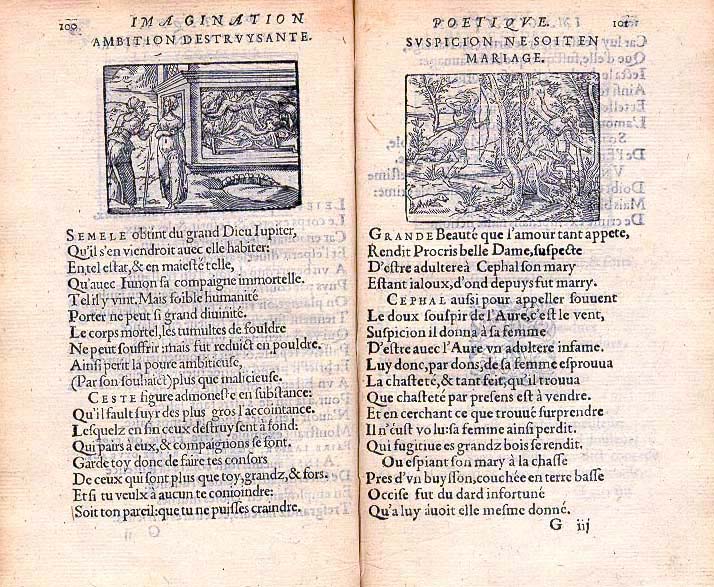 100 IMAGINATION
AMBITION DESTRVYSANTE.
SEMELE obtint du grand Dieu Iupiter,
Qu'il s'en viendroit auec elle habiter:
En tel estat, & en maiesté telle,
Qu'auec Iunon sa compaigne immortelle.
Tel il y vint. Mais foible humanité
Porter ne peut si grand diuinité.
Le corps mortel, les tumultes de fouldre
Ne peut souffrir: mais fut reduict en pouldre.
Ainsi perit la poure ambitieuse,
(Par son souhaict) plus que malicieuse.
CESTE figure admoneste en substance:
Qu'il fault fuyr des plus gros l'accointance.
Lesquelz en fin ceux destruysent à fond:
Qui pairs à eux, & compaignons se font.
Garde toy donc de faire tes consors
De ceux qui sont plus que toy, grandz, & fors:
Et si tu veulx à aucun te conioindre:
Soit ton pareil: que tu ne puisses craindre.
POETIQVE. 101
SVSPICION NE SOIT EN
MARIAGE.
GRANDE Beauté que l'amour tant appete,
Rendit Procris belle Dame, suspecte
D'estre adultere à Cephal son mary
Estant ialoux, d'ond depuys fut marry.
CEPHAL aussi pour appeller souuent
Le doux souspir de l'Aure, c'est le vent,
Suspicion il donna à sa femme
D'estre auec l'Aure vn adultere infame.
Luy donc, par dons, de sa femme esprouua
La chasteté, & tant feit, qu'il trouua
Que chasteté par presens est à vendre.
Et en cerchant ce que trouué surprendre
Il n'eust volu: sa femme ainsi perdit.
Qui fugitiue es grandz bois se rendit.
Ou espiant son mary à la chasse
Pres d'vn buysson, couchée en terre basse
Occise fut du dard infortuné
Qu'a luy auoit elle mesme donné.
G iij